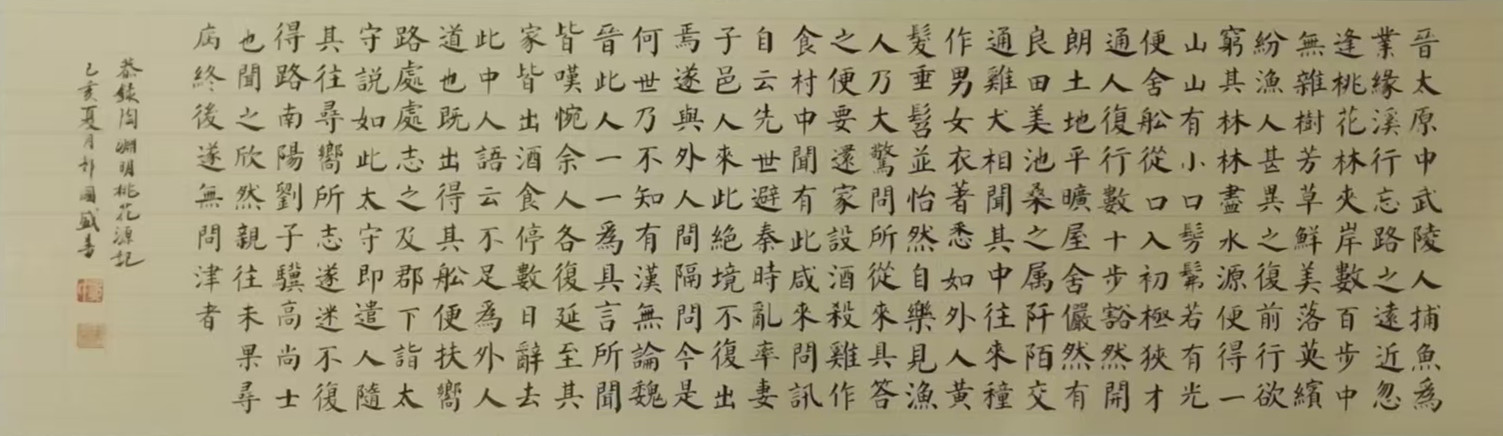 晉太原中武陵人捕魚為
業緣溪行忘路之遠近忽
逢桃花林夾岸數百步中
無雜樹芳草鮮美落英繽
紛漁人甚異之復前行欲
窮其林林盡水源便得一
山山有小口髣髴若有光
便舍舩從口入初極狹才
通人復行數十步豁然開
朗土地平曠屋舍儼然有
良田美池桑之属阡陌交
通雞犬相聞其中往來種
作男女衣著悉如外人黃
髮垂髫並怡然自樂見漁
人乃大驚問所從來具答
之便要還家設酒殺雞作
食村中聞有此咸來問訊
自云先世避秦時亂率妻
子邑人來此絕境不復出
焉遂與外人間隔問今是
何世乃不知有漢無論魏
晉此人一一為具言所聞
皆嘆惋余人各復延至其
家皆出酒食停數日辭去
此中人語云不足為外人
道也既出得其舩便扶嚮
路處處志之及郡下詣太
守説如此太守即遣人隨
其往尋嚮所志遂迷不復
得路南陽劉子驥高尚士
也聞之欣然親往未果尋
病終後遂無問津者
恭錄陶淵明桃花源記
己亥夏月國盛書